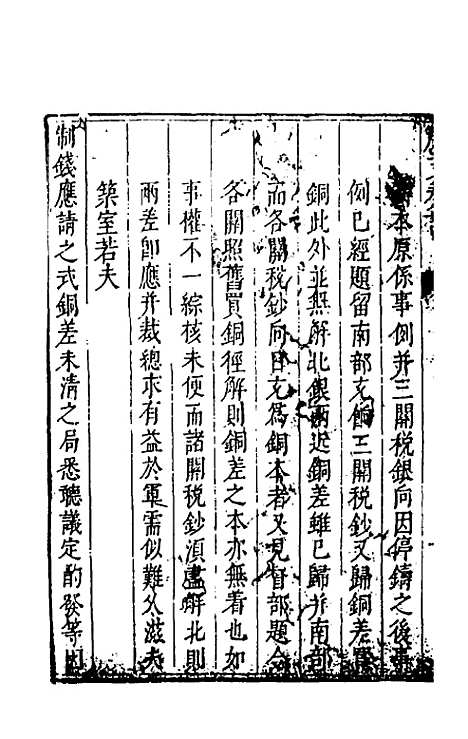 本原係事例并三關稅銀向因停鑄之後事
例已經題留南部充餉三關稅鈔又歸銅差買
銅此外並無解北銀兩近銅差雖已歸并南部
而各關稅鈔向日充爲銅本者又見督部題令
各關照舊買銅徑解則銅差之本亦無着也如
事權不一綜核未便而諸關稅鈔須盡解北則
兩差卽應并裁總求有益於軍需似難久滋夫
築室若夫
制錢應請之式銅差未清之局悉聽議定酌發等因